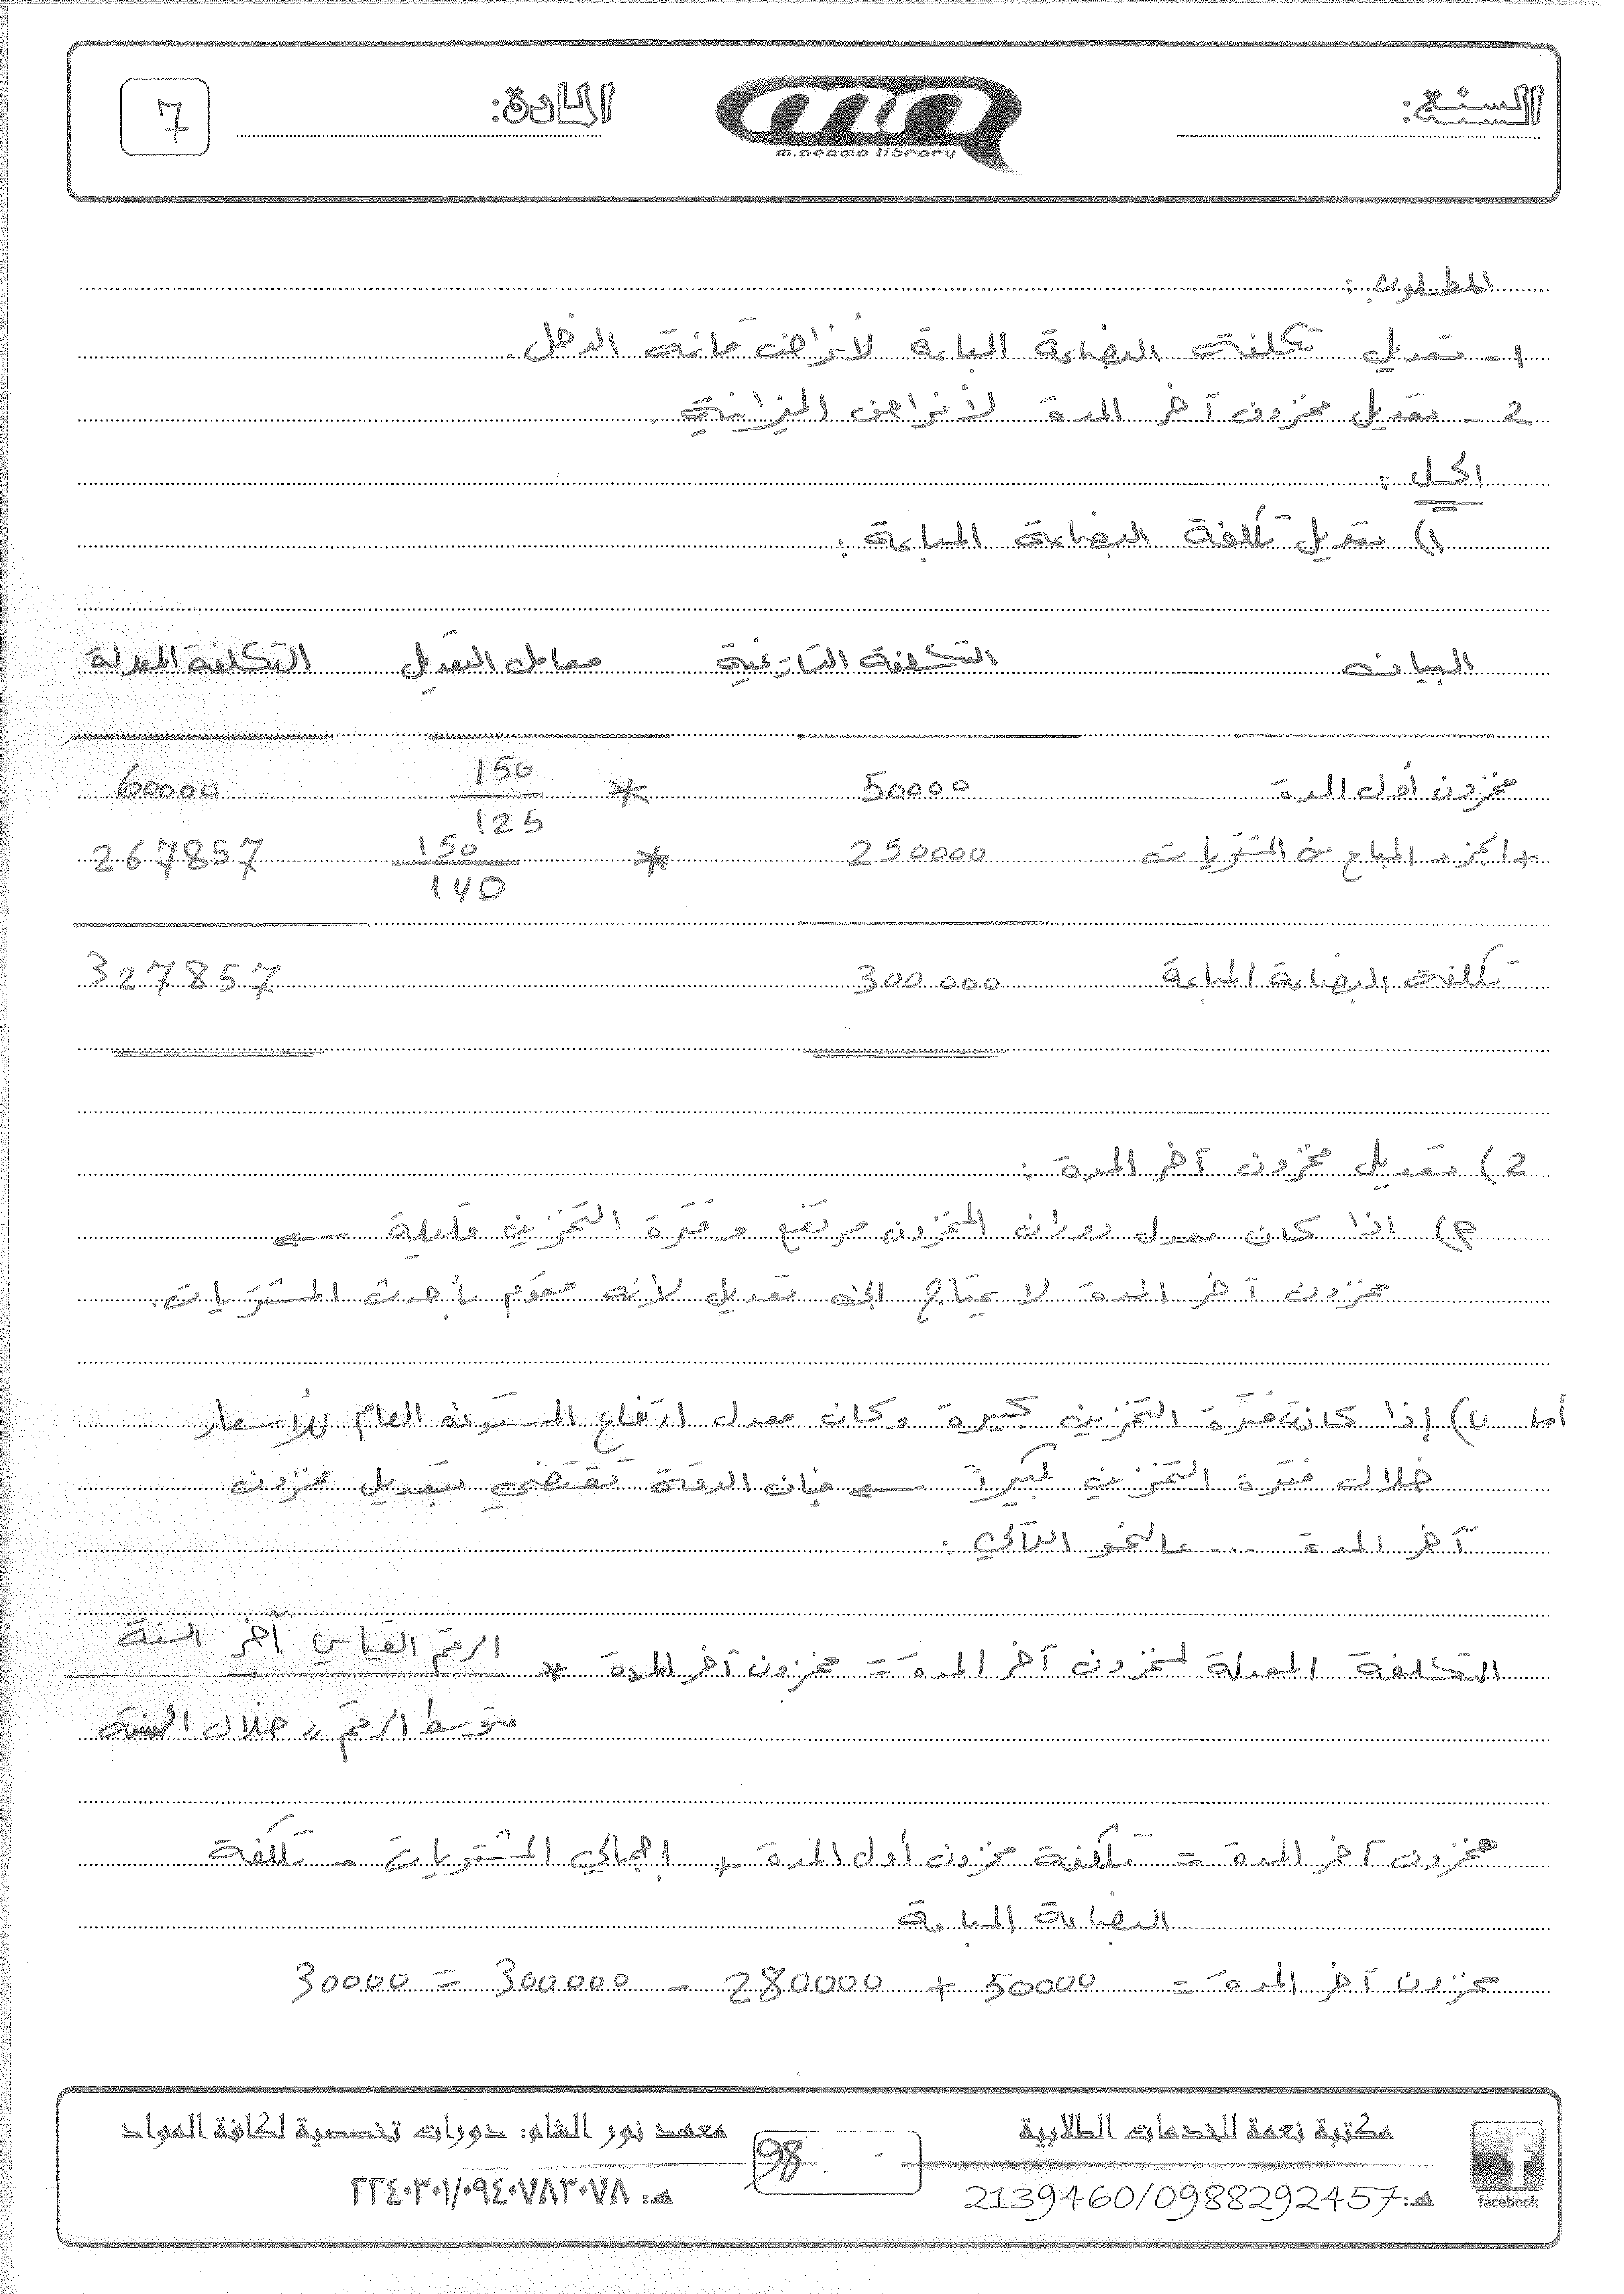 السنة:
m.neama library
المادة:
7
المطلوب:
1- تعديل تكلفة البضاعة المباعة لأغراض قائمة الدخل.
2- تعديل مخزون آخر المدة لأغراض الميزانية.
الحل:
1) تعديل تكلفة البضاعة المباعة:
البيان التكلفة التاريخية معامل التعديل التكلفة المعدلة
مخزون أول المدة 50000 * 150/125 60000
+ الجزء المباع من المشتريات 250000 * 150/140 267857
تكلفة البضاعة المباعة 300000 327857
2) تعديل مخزون آخر المدة:
م) اذا كان معدل دوران المخزون مرتفع وفترة التخزين قليلة ←
مخزون آخر المدة لا يحتاج الى تعديل لأنه مقوم بأحدث المشتريات.
أما ب) إذا كانت فترة التخزين كبيرة وكان معدل ارتفاع المستوى العام للأسعار
خلال فترة التخزين كبيراً ← فإن الدقة تقتضي تعديل مخزون
آخر المدة ... عالنحو التالي:
التكلفة المعدلة لمخزون آخر المدة = مخزون آخر المدة * الرقم القياسي آخر السنة
متوسط الرقم // خلال السنة
مخزون آخر المدة = تكلفة مخزون أول المدة + اجمالي المشتريات - تكلفة
البضاعة المباعة
مخزون آخر المدة = 50000 + 280000 - 300000 = 30000
مكتبة نعمة للخدمات الطلابية
هـ: 2139460/0988292457
facebook
98
معهد نور الشام: دورات تخصصية لكافة المواد
هـ: ٢٢٤٠٣٠١/٠٩٤٠٧٨٣٠٧٨